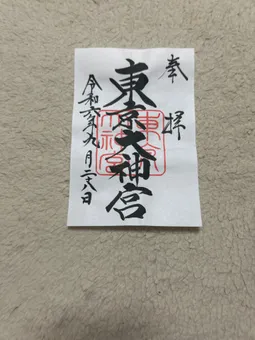 奉拝
東京大神宮
令和六年九月二十八日
東京大神宮